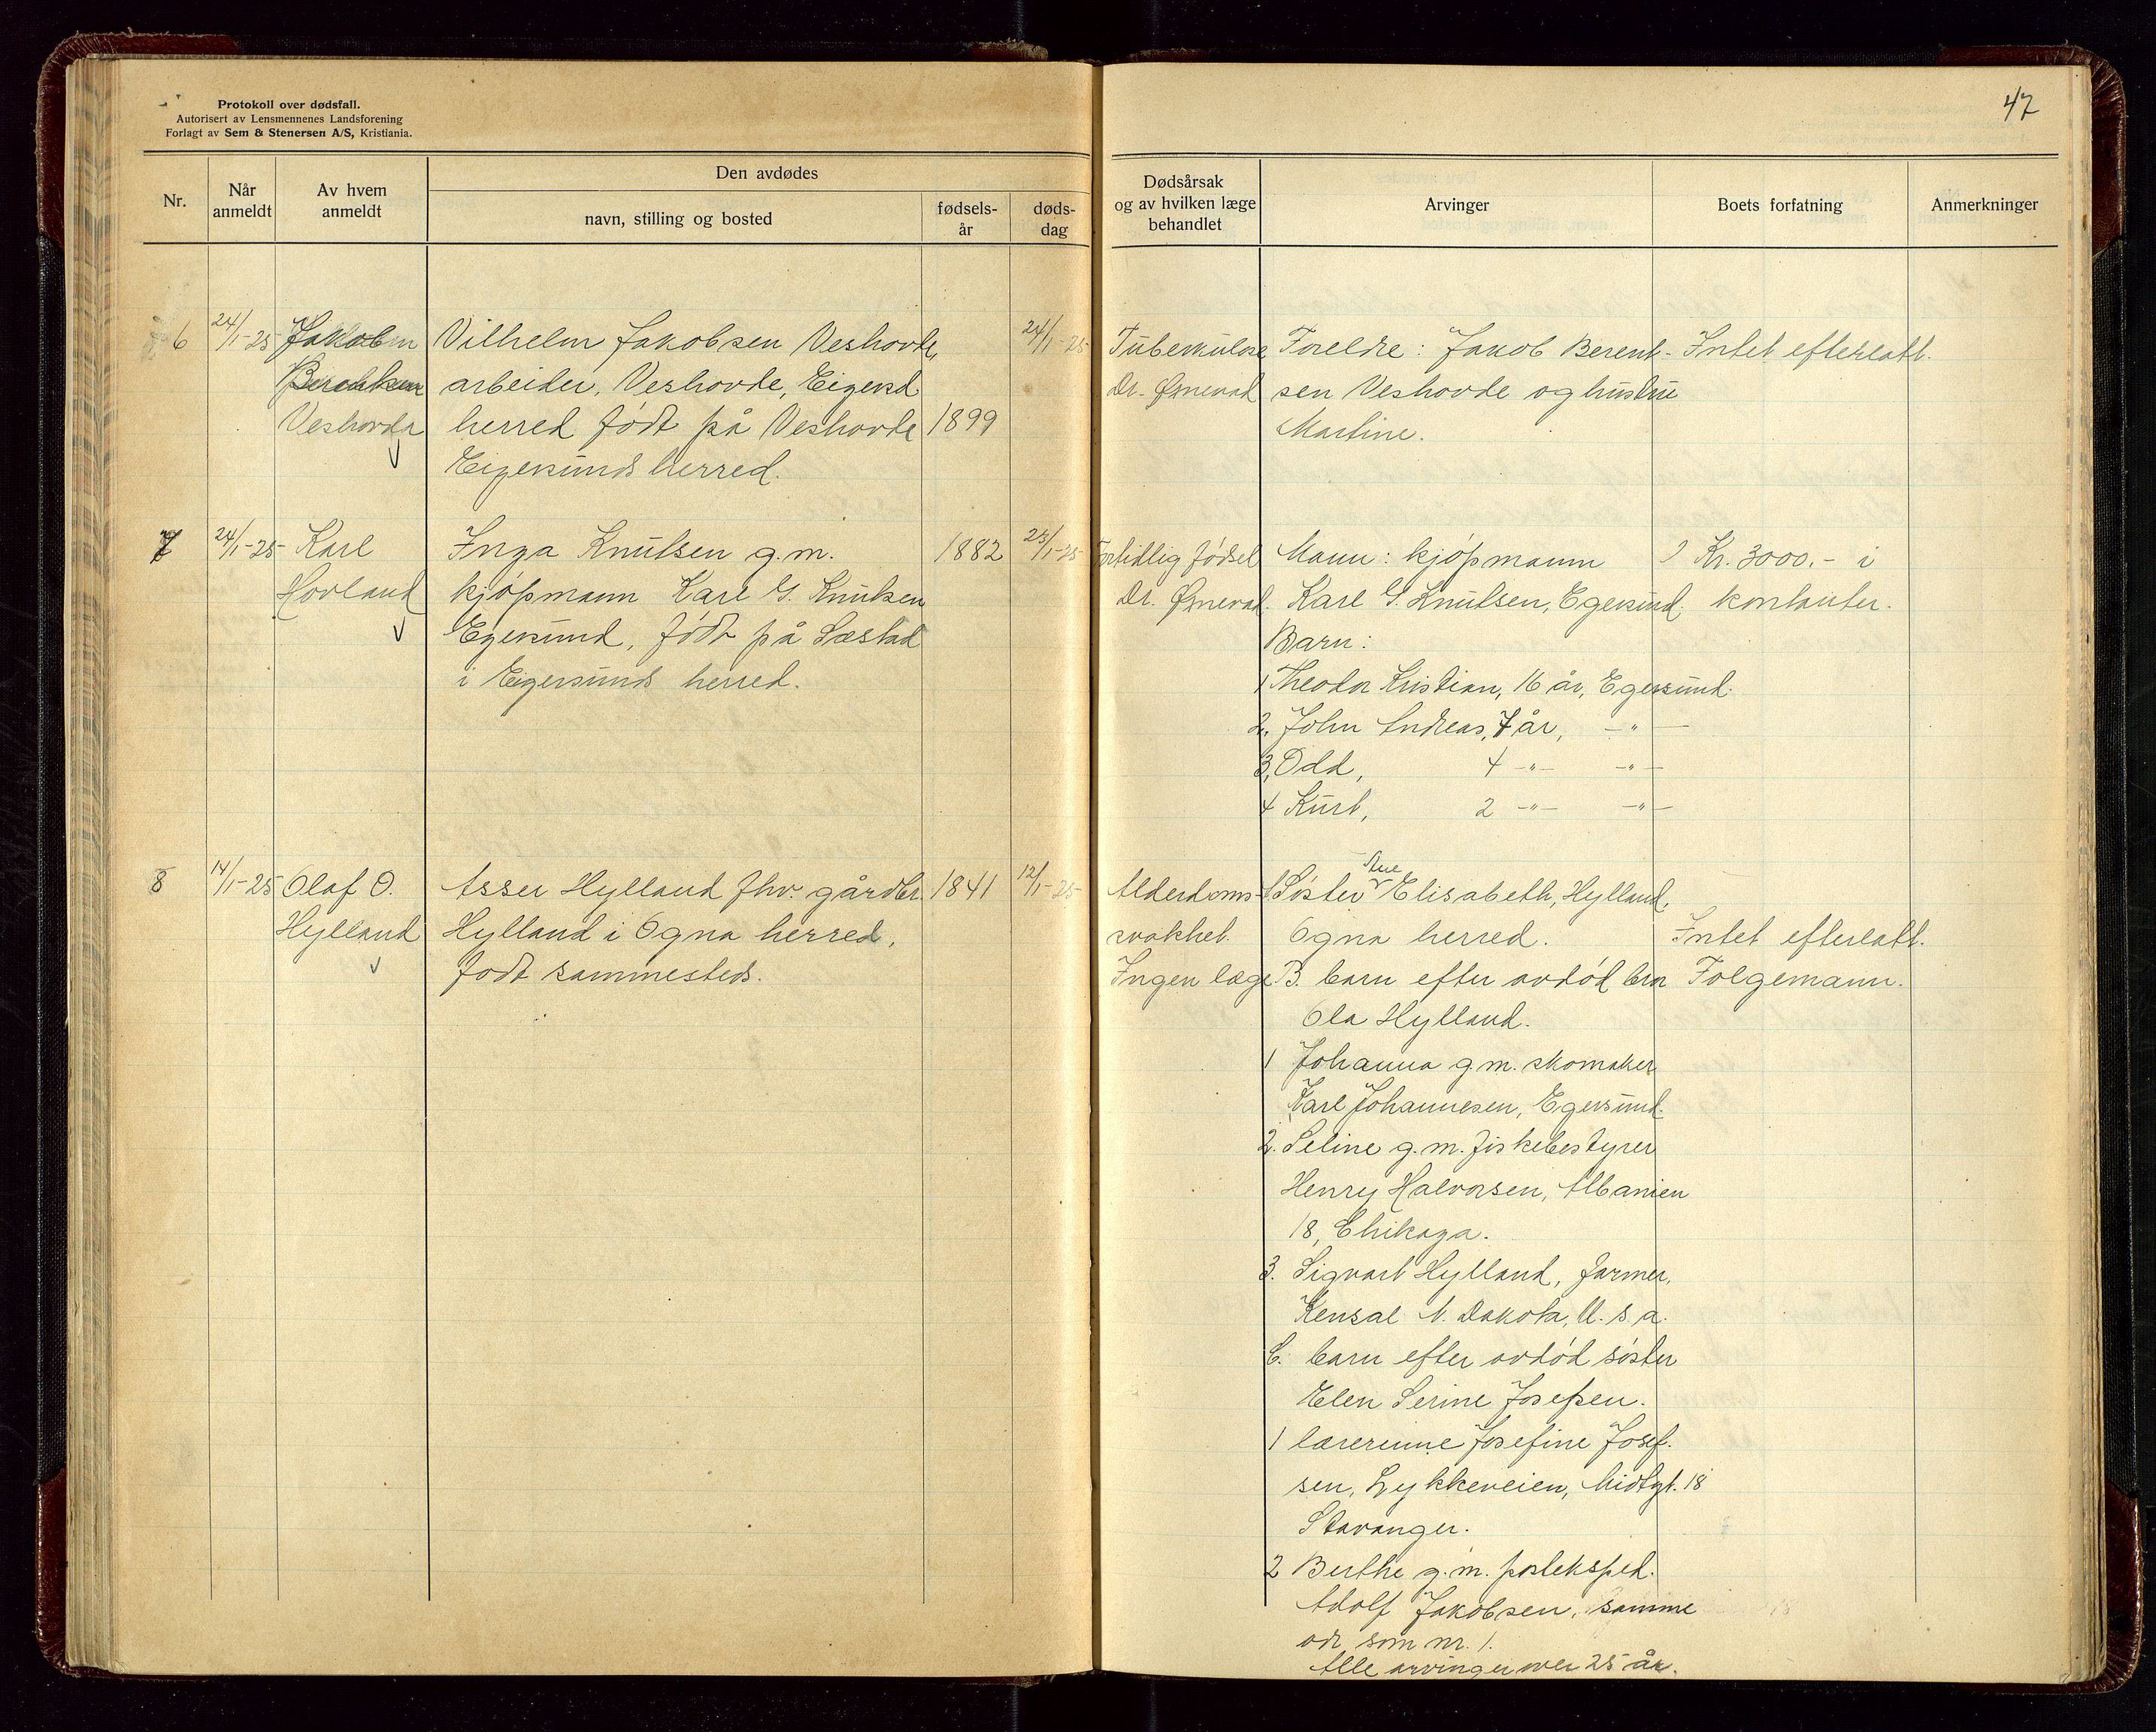 Protokoll over dødsfall.
Autorisert av Lensmennenes Landsforening
Forlagt av Sem & Stenersen A/S, Kristiania.
47
Nr.
Når anmeldt
Av hvem anmeldt
Den avdødes
navn, stilling og bosted
fødsels-år
døds-dag
Dødsårsak og av hvilken læge behandlet
Arvinger
Boets forfatning
Anmerkninger
6
24/1-25
Jakob
Berentsen
Veshovde
Vilhelm Jakobsen Veshovde,
arbeider, Veshovde, Eigersd.
herred født på Veshovde
Eigersunds herred.
1899
24/1-25
Tuberkulose
Dr. Ørnevad
Foreldre: Jakob Berent-
sen Veshovde og hustru
Martine.
Intet efterlatt.
7
24/1-25
Karl
Hovland
Inga Knutsen g.m.
kjøpmann Karl G. Knutsen
Egersund, født på Sæstad
i Eigersunds herred.
1882
23/1-25
Fortidlig fødsel
Dr. Ørnevad.
Mann: kjøpmann
Karl G. Knutsen, Egersund.
Barn:
1 Theodor Kristian, 16 år, Egersund.
2. John Andreas, 7 år, -"-
3. Odd, 4 -"- -"-
4 Kurt, 2 -"- -"-
Kr. 3000.- i
kontanter.
8
14/1-25
Olaf O.
Hylland
Asser Hylland fhv. gårdbr.
Hylland i Ogna herred,
født sammesteds.
1841
12/1-25
Alderdoms-
svakhet.
Ingen læge
Søster Elisabeth, Hylland,
Ogna herred.
B. barn efter avdød bror
Ola Hylland.
1 Johanna g.m. skomaker
Karl Johannesen, Egersund.
2. Seline g.m. fiskebestyrer
Henry Halvorsen, Albanien
18, Chikaga.
3. Sigvart Hylland, farmer,
Kensal N. Dakota, U.s.a.
C. barn efter avdød søster
Elen Serine Josefsen.
1 lærerinne Josefine Josef-
sen, Lykkeveien, Midtgt. 18
Stavanger.
2 Berthe g.m. posteksped.
Adolf Jakobsen, samme
adr. som nr. 1.
Alle arvinger over 25 år.
Intet efterlatt.
Folgemann.